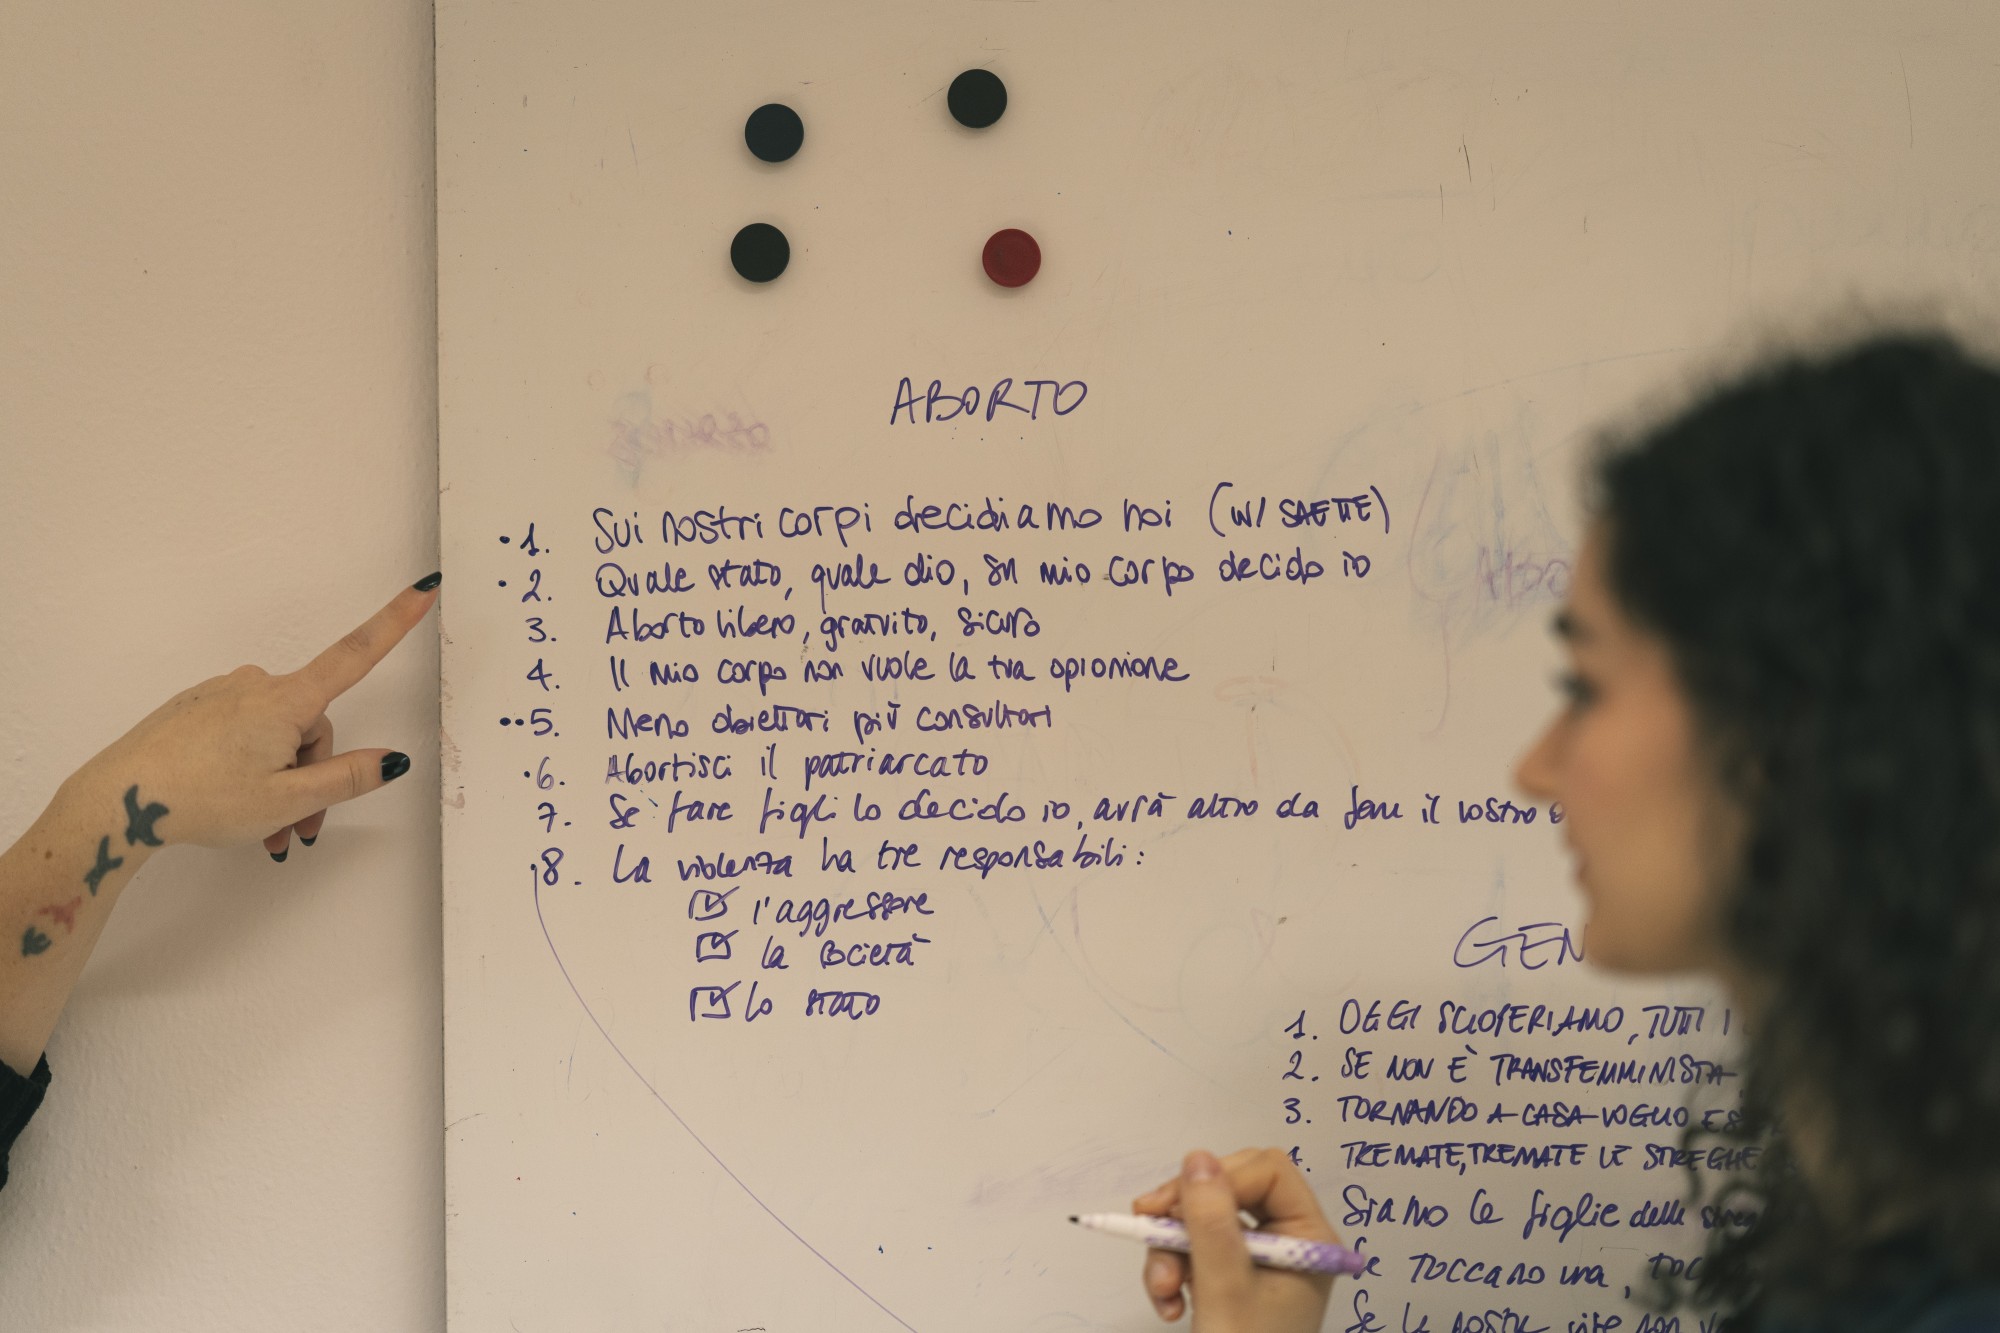 ABORTO
• 1. Sui nostri corpi decidiamo noi (W/ SAETTE)
• 2. Quale stato, quale dio, su mio corpo decido io
3. Aborto libero, gratuito, sicuro
4. Il mio corpo non vuole la tua opionione
•• 5. Meno obiettori più consultori
• 6. Abortisci il patriarcato
7. Se fare figli lo decido io, avrà altro da fare il vostro
• 8. La violenza ha tre responsabili:
☑ l'aggressore
☑ la società
☑ lo stato
GEN
1. OGGI SCIOPERIAMO, TUTTI I
2. SE NON È TRANSFEMMINISTA
3. TORNANDO A CASA VOGLIO ES
4. TREMATE, TREMATE LE STREGHE
Siamo le figlie delle streg
Se toccano una, toc
Se le nostre vite non v